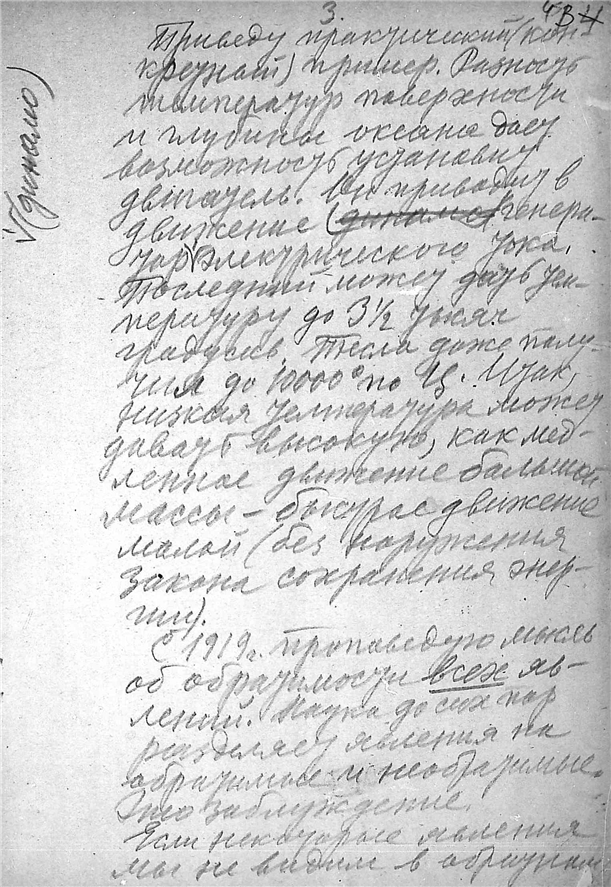 3.
4
Приведу практический (кон-
кретный) пример. Разность
температур поверхности
и глубины океана дает
возможность установить
двигатель. Он приводит в
движение (динамо) генера-
тор √ электрического тока.
√(динамо)
Последний может дать тем-
пературу до 3½ тысяч
градусов. Тесла даже полу-
чил до 10000° по Ц. Итак,
низкая температура может
давать высокую, как мед-
ленное движение большой
массы – быстрое движение
малой (без нарушения
закона сохранения энер-
гии).
С 1919 г. проповедую мысль
об обратимости всех яв-
лений. Наука до сих пор
разделяет явления на
обратимые и необратимые.
Это заблуждение.
Если некоторые явления
мы не видим в обратном